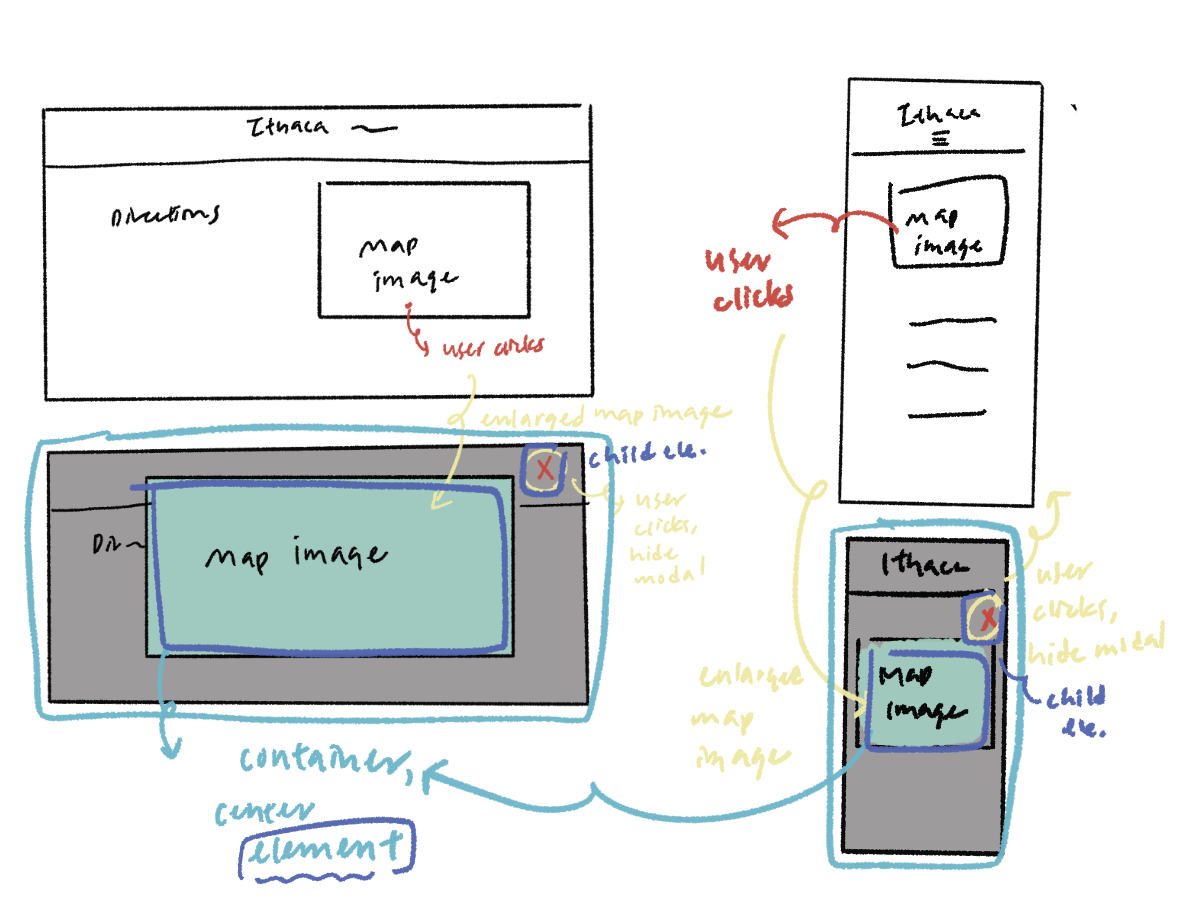 Ithaca
Directions
map
image
user clicks
enlarged map image
X
child ele.
user
clicks,
hide
modal
Dir
map image
container,
center
element
Ithaca
map
image
user
clicks
Ithaca
X
user
clicks,
hide modal
enlarged
map
image
Map
image
child
ele.